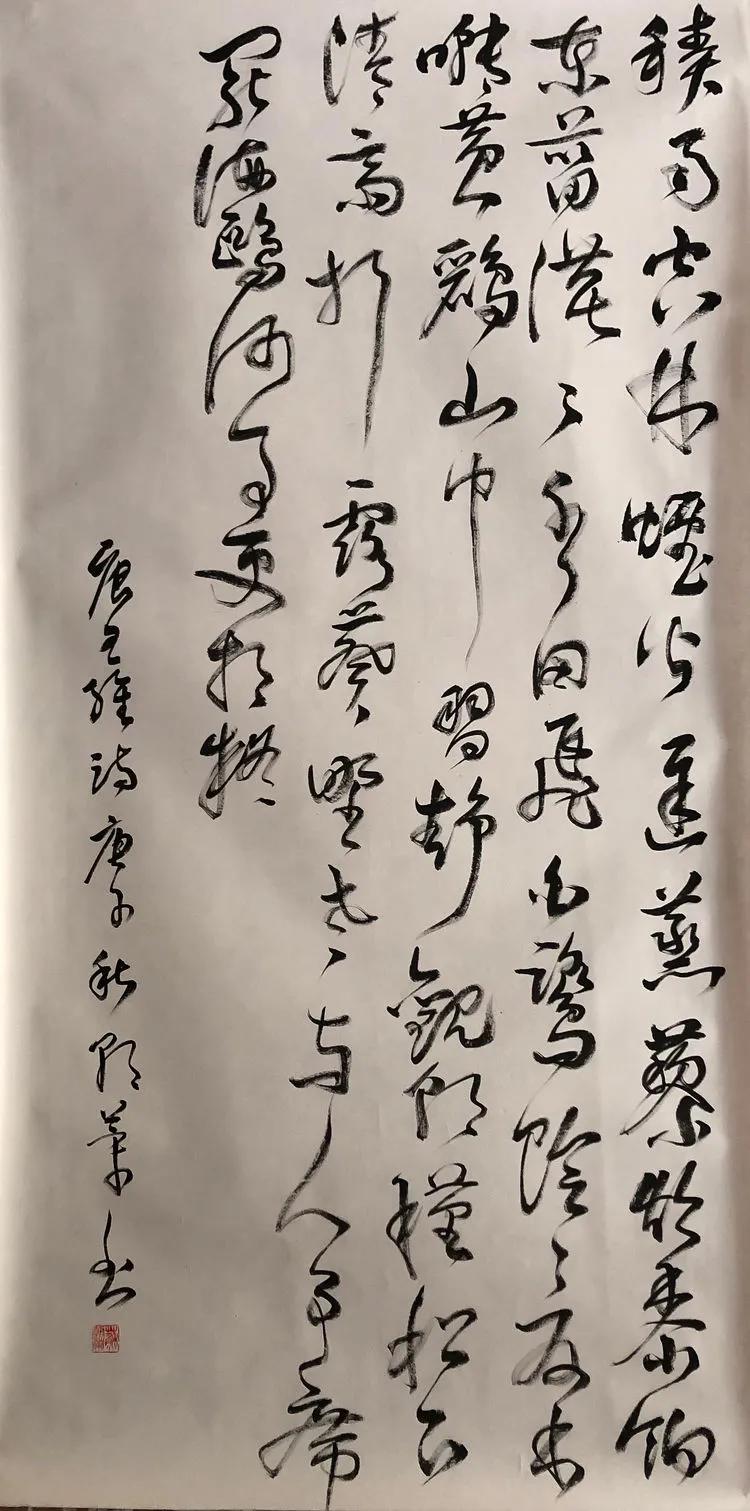 積雨空林煙火遲蒸藜炊黍餉
東菑漠〻水田飛白鷺陰〻夏木
囀黃鸝山中習靜觀朝槿松下
清齋折露葵野老與人爭席
罷海鷗何事更相疑
唐王維詩庚子秋書